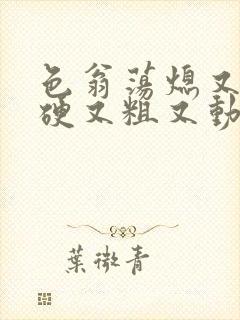 色翁荡熄又
硬又粗又動
葉微青